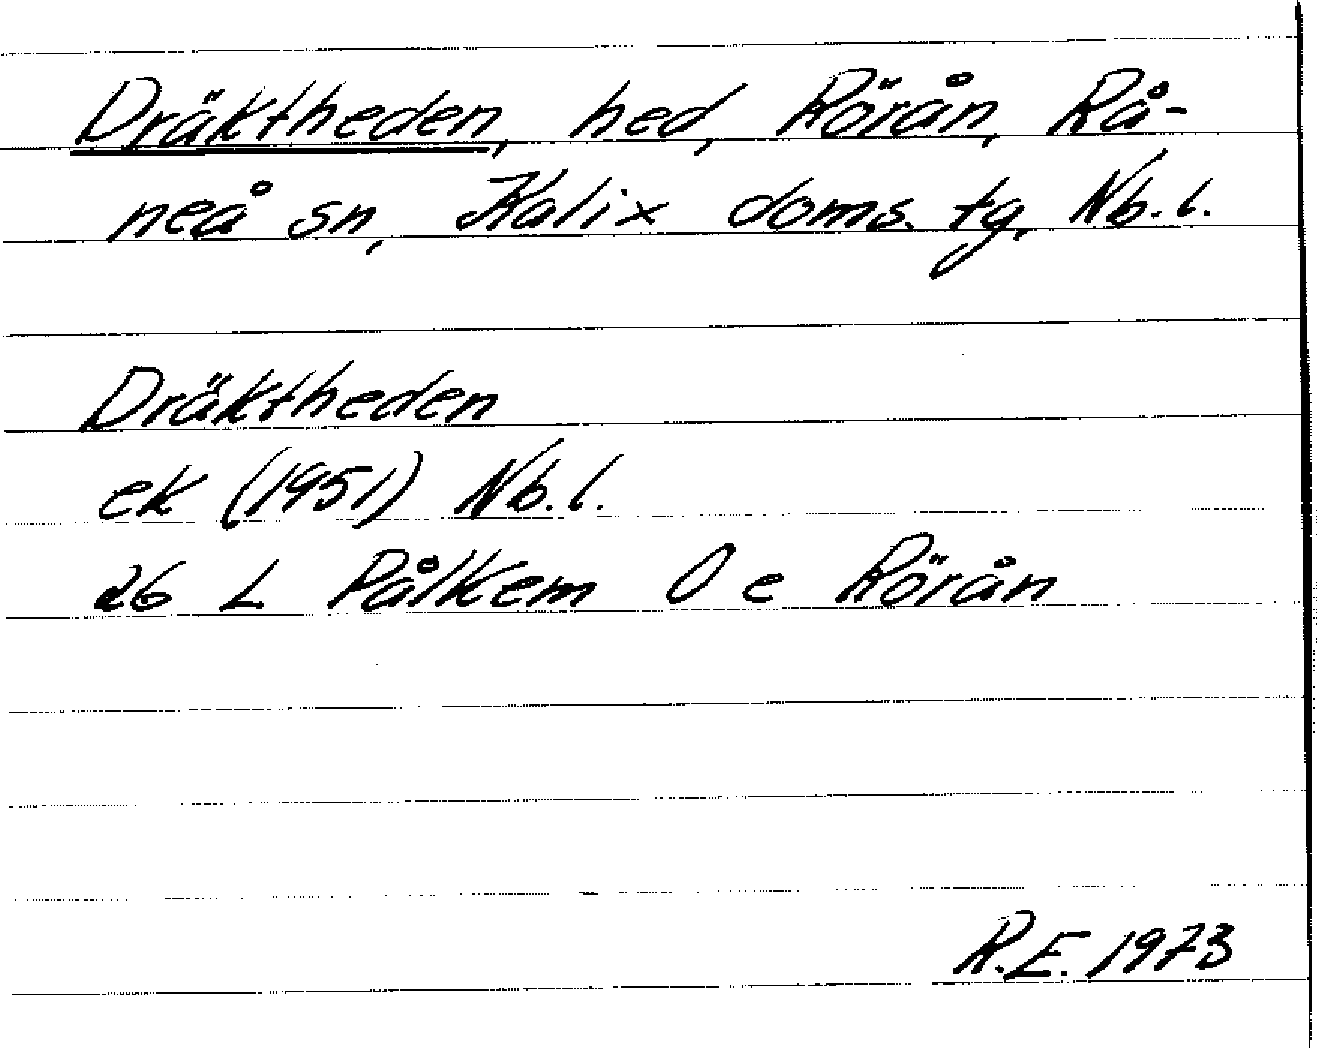 Dräktheden, hed, Rörån, Rå-
neå sn, Kalix doms. tg, Nb.l.
Dräktheden
ek (1951) Nb.l.
26 L Pålkem O e Rörån
R.E. 1973